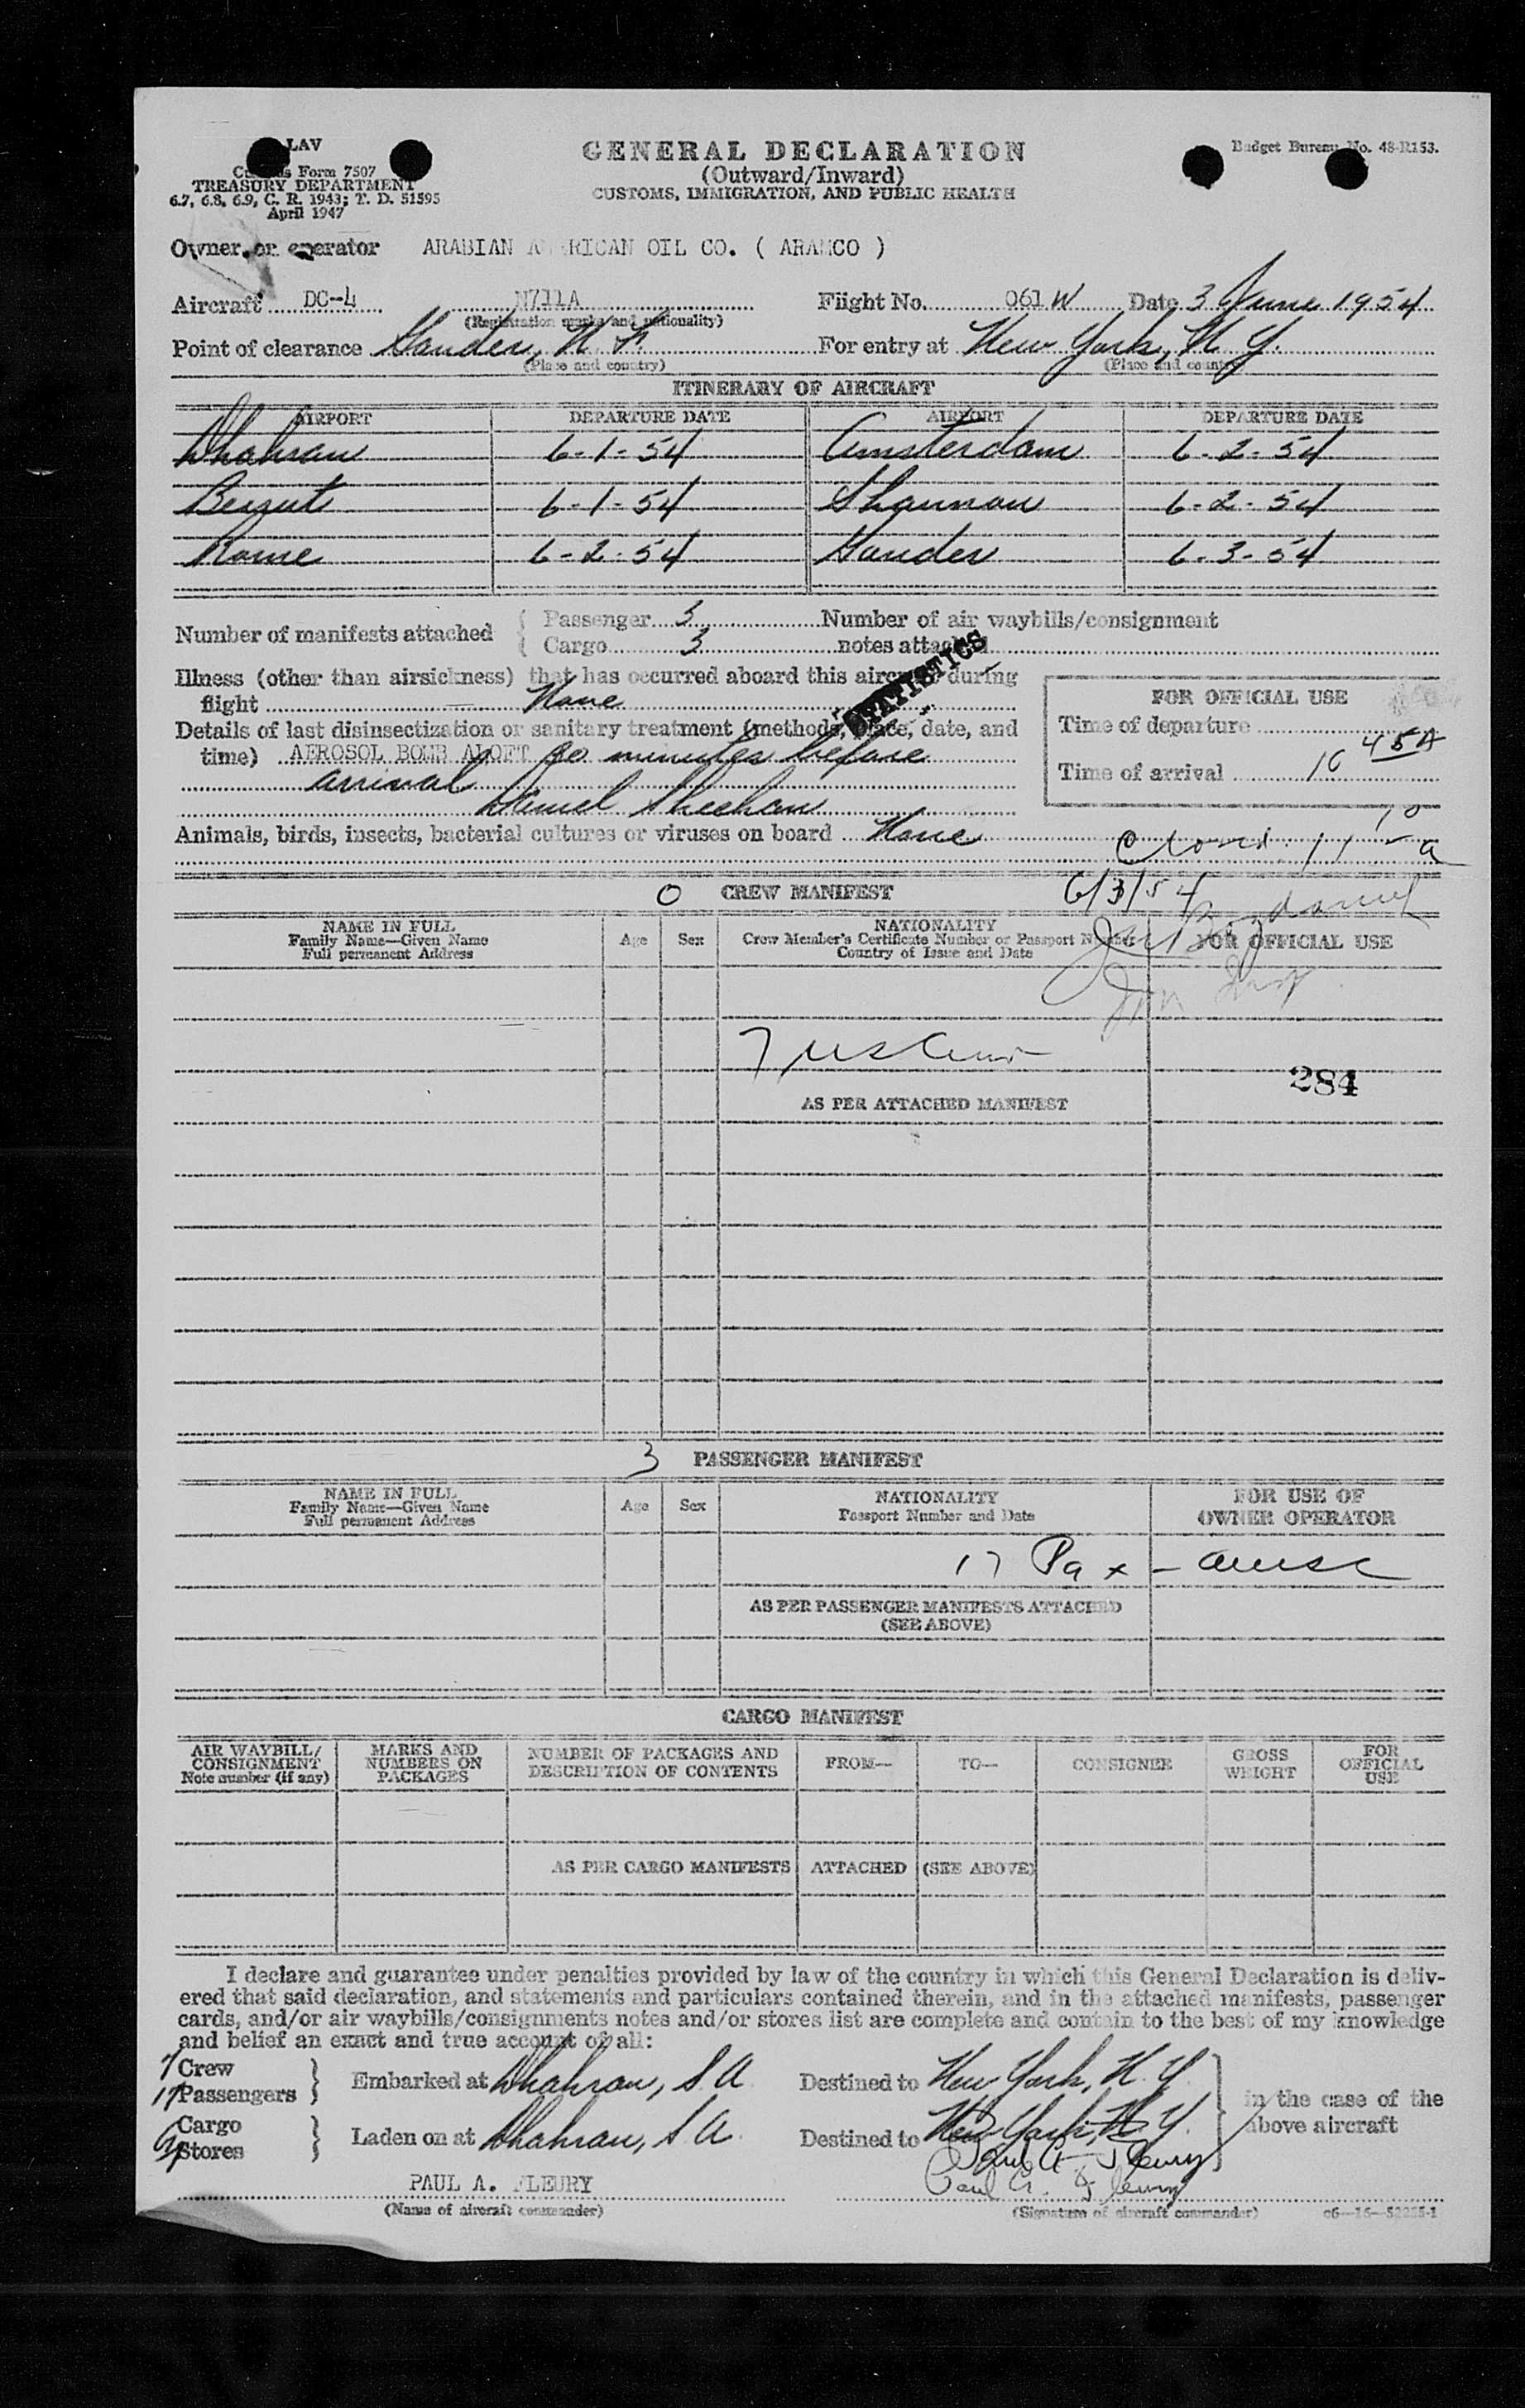 LAV
Form 7507
TREASURY DEPARTMENT
6.7, 6.8, 6.9, C. R. 1943; T. D. 51595
April 1947
GENERAL DECLARATION
(Outward/Inward)
CUSTOMS, IMMIGRATION, AND PUBLIC HEALTH
Budget Bureau No. 48-R153.
Owner or operator ARABIAN AMERICAN OIL CO. ( ARAMCO )
Aircraft DC-4 N711A Flight No. 061 W Date 3 June 1954
(Registration marks and nationality)
Point of clearance Gander, N. F. For entry at New York, N Y.
(Place and country) (Place and country)
ITINERARY OF AIRCRAFT
AIRPORT DEPARTURE DATE AIRPORT DEPARTURE DATE
Dhahran 6-1-54 Amsterdam 6-2-54
Beirut 6-1-54 Shannon 6-2-54
Rome 6-2-54 Gander 6-3-54
Number of manifests attached { Passenger 3 Number of air waybills/consignment
Cargo 3 notes attached
STATISTICS
Illness (other than airsickness) that has occurred aboard this aircraft during
flight None
Details of last disinsectization or sanitary treatment (methods, place, date, and
time) AEROSOL BOMB ALOFT 30 minutes before
arrival
Daniel Sheehan
FOR OFFICIAL USE
Time of departure
Time of arrival 10 45 A
Animals, birds, insects, bacterial cultures or viruses on board None
0 CREW MANIFEST 6/3/54
NAME IN FULL
Family Name—Given Name
Full permanent Address
Age Sex
NATIONALITY
Crew Member's Certificate Number or Passport Number
Country of Issue and Date
FOR OFFICIAL USE
284
AS PER ATTACHED MANIFEST
3 PASSENGER MANIFEST
NAME IN FULL
Family Name—Given Name
Full permanent Address
Age Sex
NATIONALITY
Passport Number and Date
FOR USE OF
OWNER OPERATOR
17 Pax -
AS PER PASSENGER MANIFESTS ATTACHED
(SEE ABOVE)
CARGO MANIFEST
AIR WAYBILL/
CONSIGNMENT
Note number (if any)
MARKS AND
NUMBERS ON
PACKAGES
NUMBER OF PACKAGES AND
DESCRIPTION OF CONTENTS
FROM—
TO—
CONSIGNEE
GROSS
WEIGHT
FOR
OFFICIAL
USE
AS PER CARGO MANIFESTS ATTACHED (SEE ABOVE)
I declare and guarantee under penalties provided by law of the country in which this General Declaration is deliv-
ered that said declaration, and statements and particulars contained therein, and in the attached manifests, passenger
cards, and/or air waybills/consignments notes and/or stores list are complete and contain to the best of my knowledge
and belief an exact and true account of all:
7 Crew
17 Passengers } Embarked at Dhahran, S. A. Destined to New York, N. Y.
Cargo
Stores } Laden on at Dhahran, S A. Destined to New York, N. Y.
in the case of the
above aircraft
Paul A Fleury
PAUL A. FLEURY Paul A. Fleury
(Name of aircraft commander) (Signature of aircraft commander)